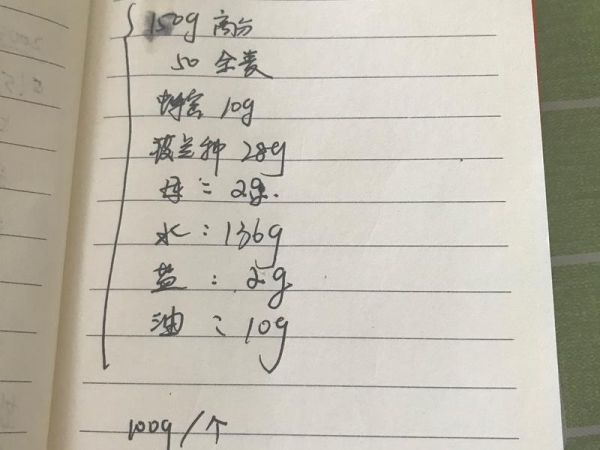 150g 高分
50 全麦
蜂蜜 10g
波兰种 28g
母: 2g.
水: 136g
盐: 2g
油: 10g
100g/个